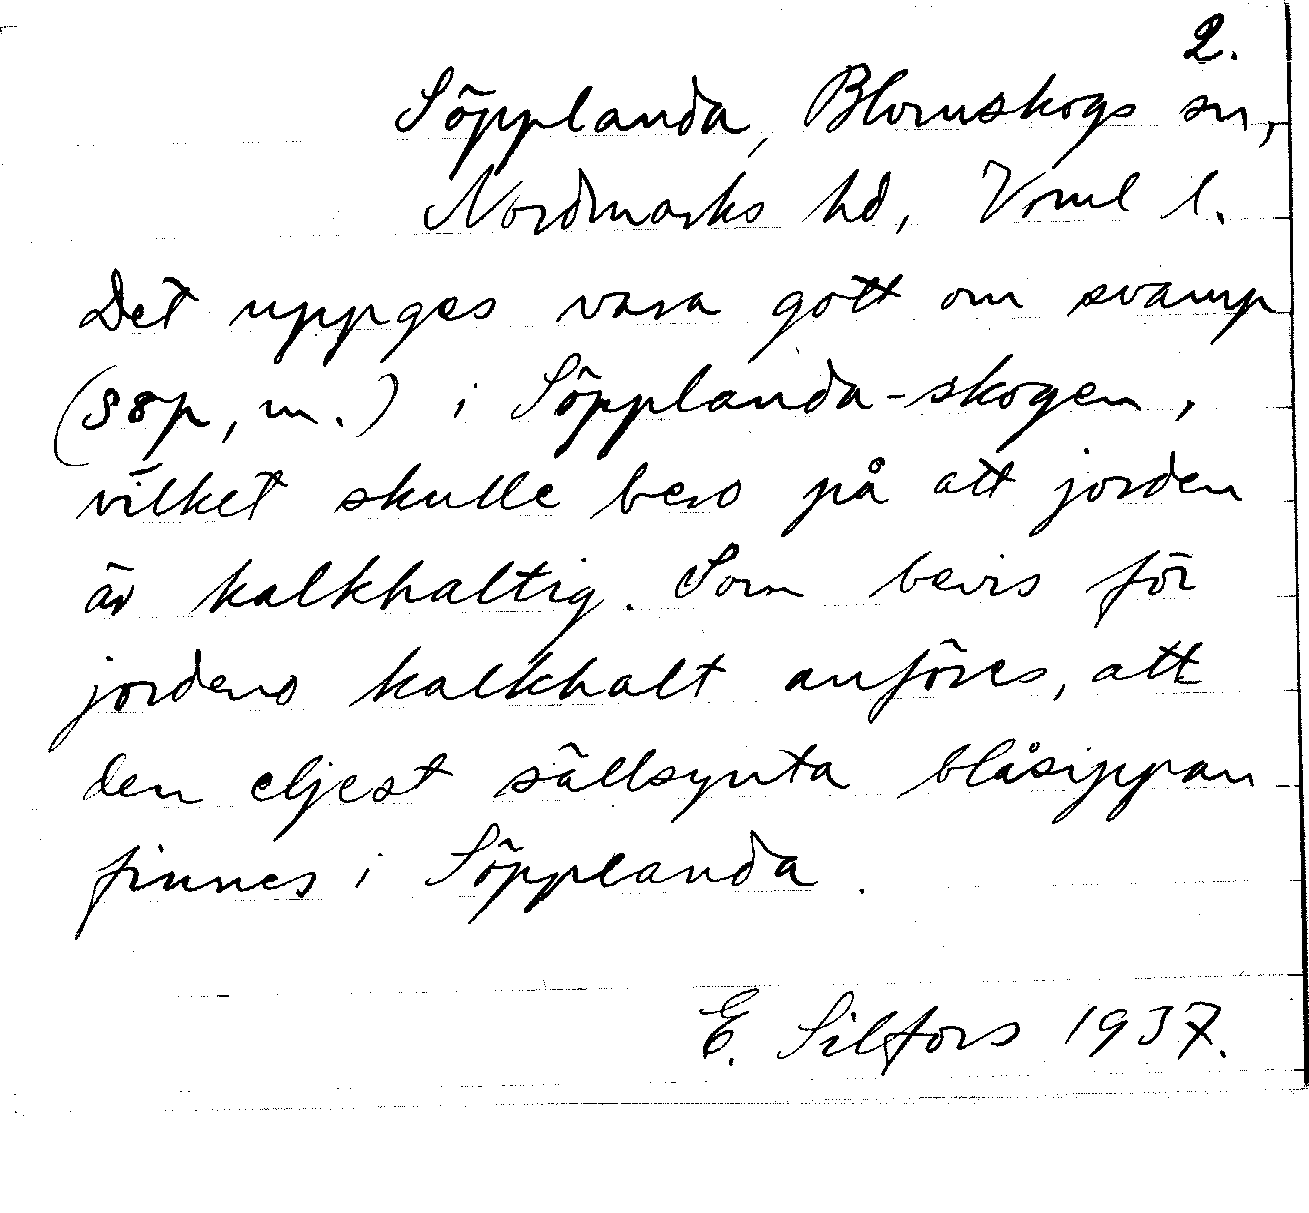 2.
Söpplanda, Blomskogs sn,
Nordmarks hd, Vrml l.
Det uppges vara gott om svamp
(sop, m.) i Söpplanda-skogen,
vilket skulle bero på att jorden
är kalkhaltig. Som bevis för
jordens kalkhalt anföres, att
den eljest sällsynta blåsippan
finnes i Söpplanda.
E. Silfors 1937.